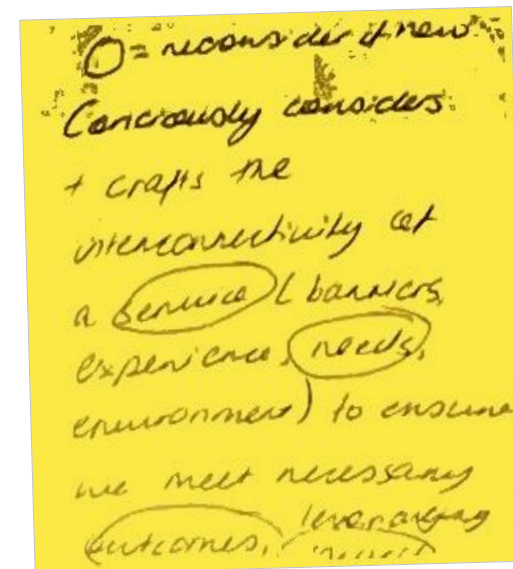 O = reconsider if new
Conciously considers
+ crafts the
interconnectivity of
a service (barriers,
experience, needs,
environment) to ensure
we meet necessary
leveraging
outcomes,